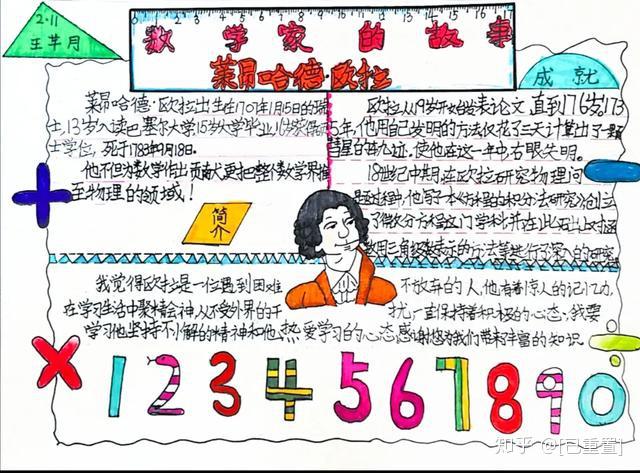 2.11
王芊月
0 1 2 3 4 5 6 7 8 9 10 11 12 13 14 15 16 17
数学家的故事
莱昂哈德·欧拉
成就
莱昂哈德·欧拉出生在1707年4月15日的瑞
士,13岁入读巴塞尔大学15岁大学毕业,16岁获得硕
士学位,死于1783年9月18日。
他不但为数学作出贡献,更把整个数学界推
至物理的领域!
简介
欧拉从19岁开始发表论文,直到76岁。173
5年,他用自己发明的方法仅花了三天计算出了一颗
彗星的轨迹,使他在这一年中右眼失明。
18世纪中期,在欧拉研究物理问
题过程中,他写了
方程的积分法研究》创立
了微分方程这门学科,并在此
上对函
数用三角级数表示的方法
进行了深入的研究
我觉得欧拉是一位遇到困难
不放弃的人,他有着惊人的记忆力,
在学习生活中聚精会神,从不受外界的干
扰,一直保持着积极的心态。我要
学习他坚持不懈的精神和他热爱学习的心态感谢您为我们带来丰富的知识
1 2 3 4 5 6 7 8 9 0
知乎 @[已重置]